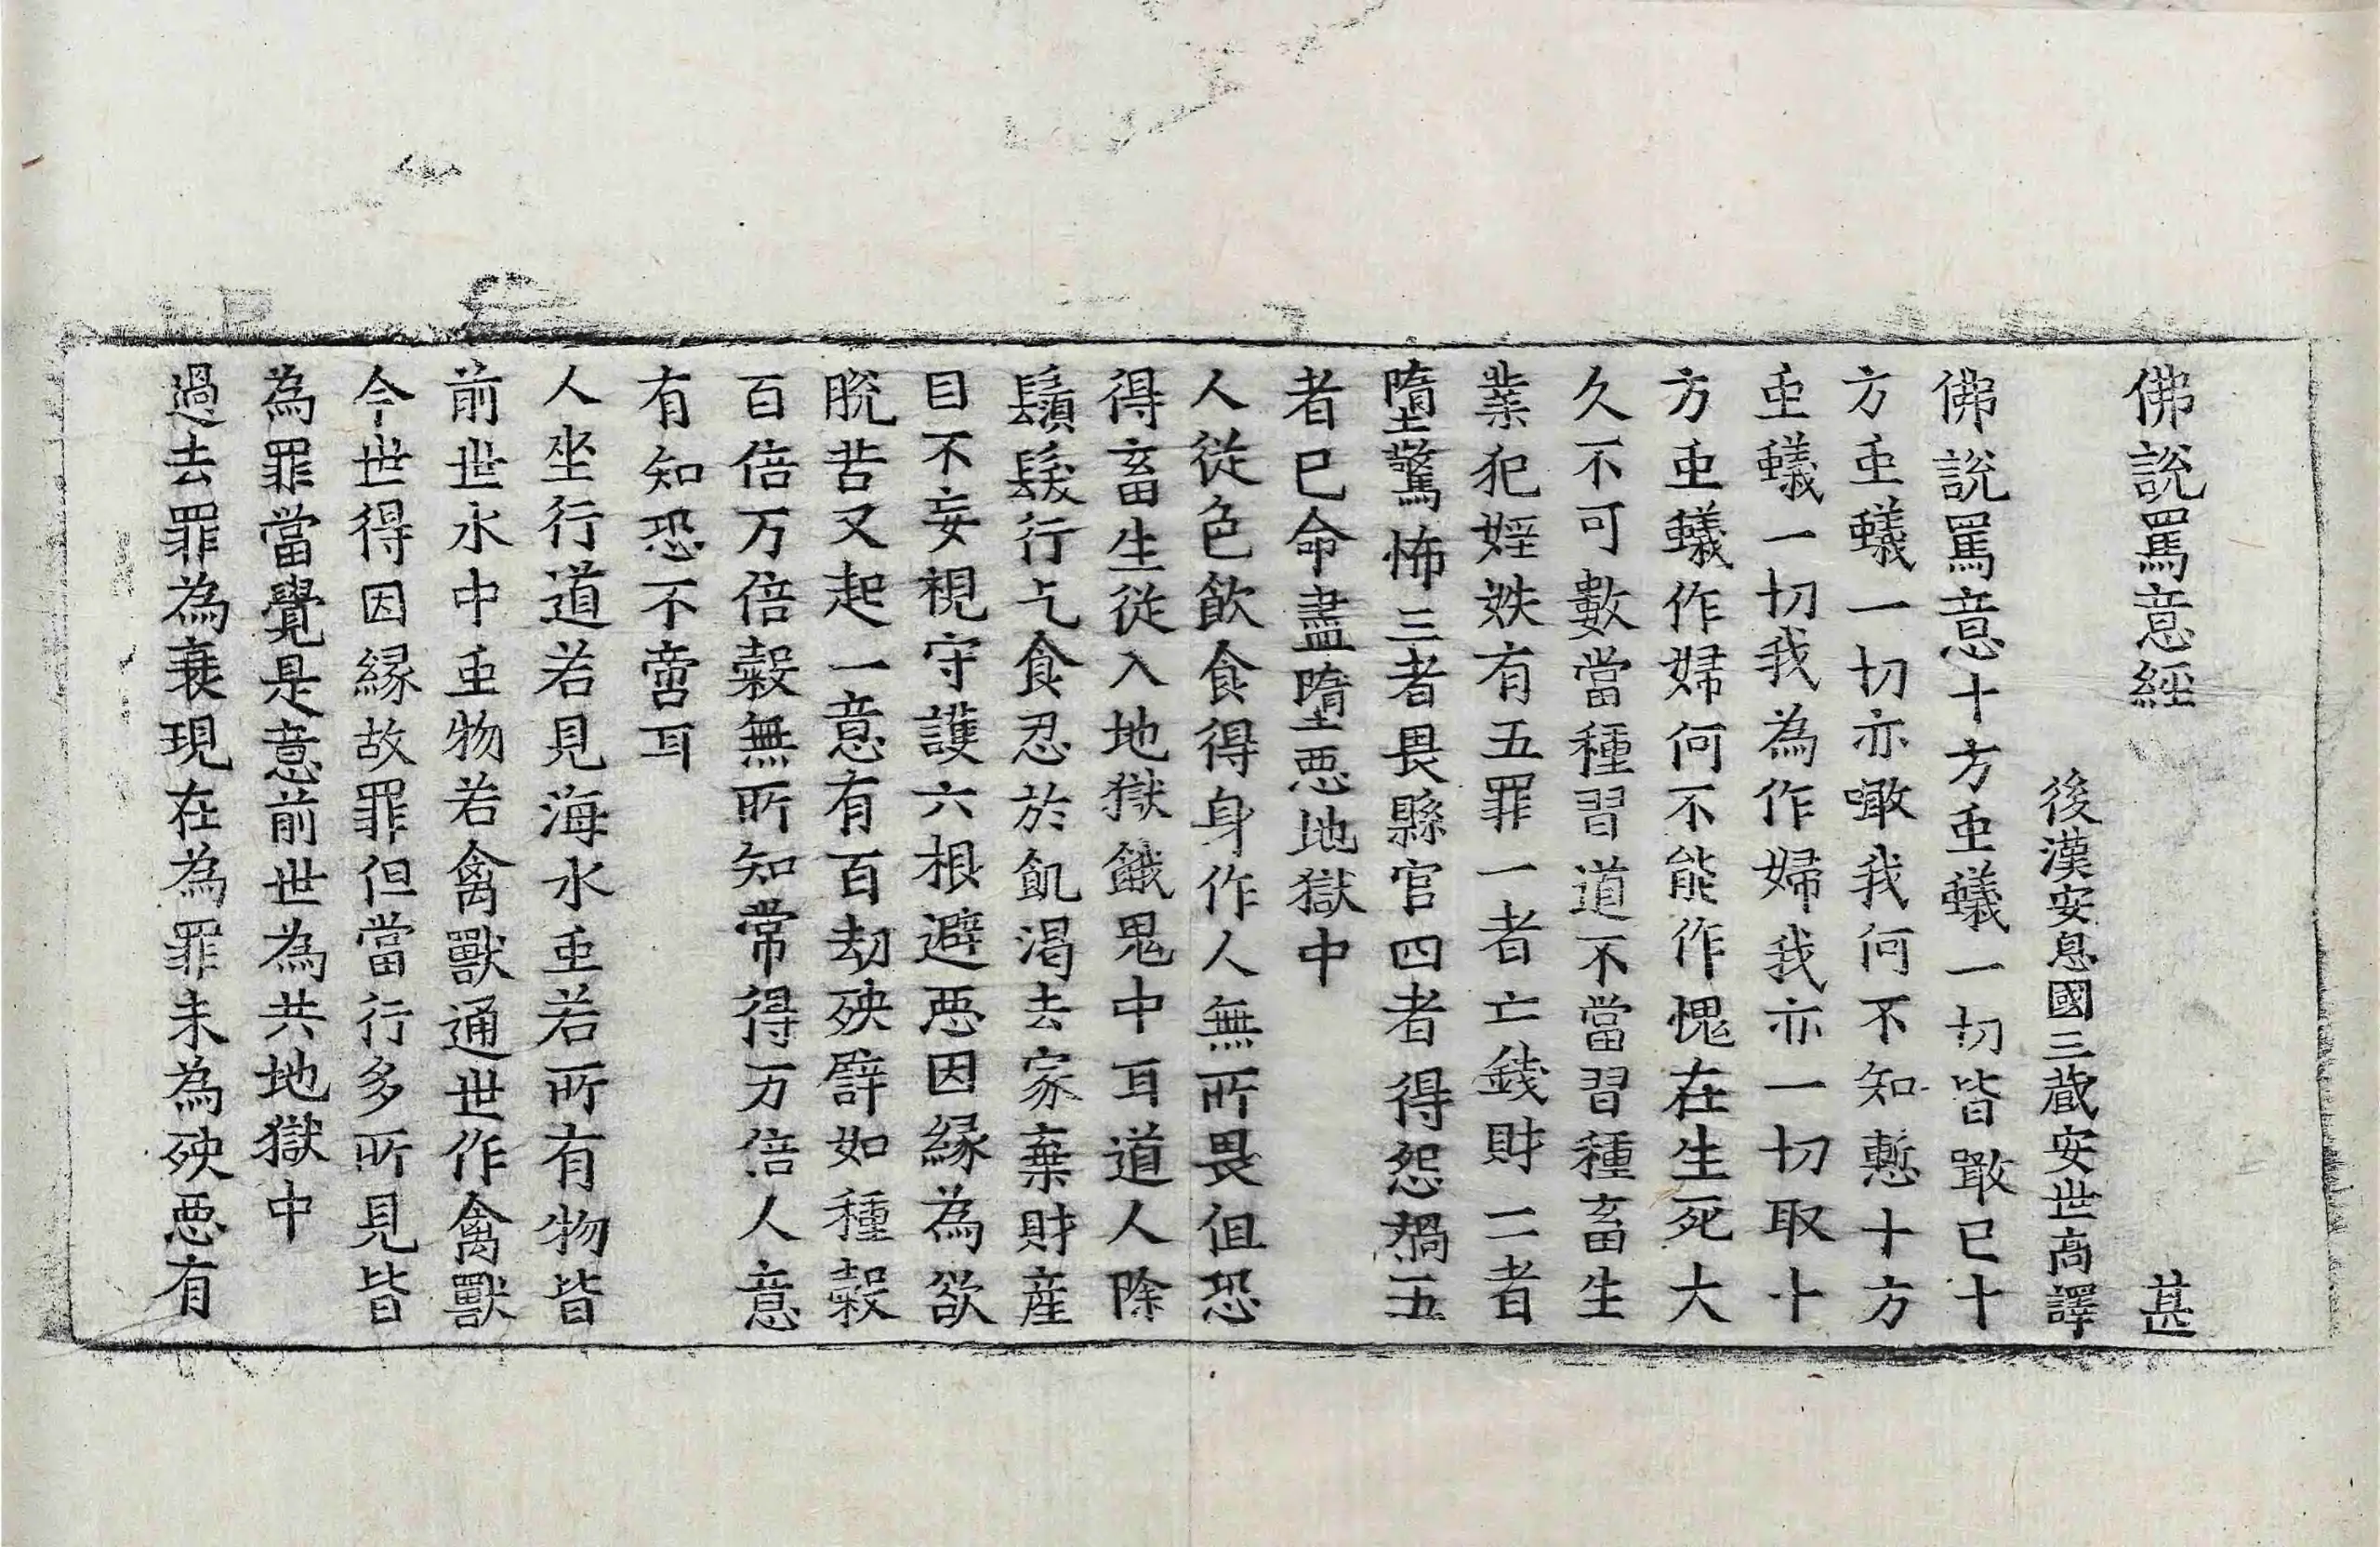 佛說罵意經　甚
後漢安息國三藏安世高譯
佛說罵意十方䖝蟻一切皆噉已十
方䖝蟻一切亦噉我何不知慙十方
䖝蟻一切我為作婦我亦一切取十
方䖝蟻作婦何不能作愧在生死大
久不可數當種習道不當習種畜生
業犯婬妷有五罪一者亡錢財二者
墮驚怖三者畏縣官四者得怨禍五
者已命盡墮惡地獄中
人從色飲食得身作人無所畏但恐
得畜生從入地獄餓鬼中耳道人除
鬚髮行乞食忍於飢渴去家棄財産
目不妄視守護六根避惡因緣為欲
脫苦又起一意有百劫殃譬如種穀
百倍万倍穀無所知常得万倍人意
有知恐不啻耳
人坐行道若見海水䖝若所有物皆
前世水中䖝物若禽獸通世作禽獸
今世得因緣故罪但當行多所見皆
為罪當覺是意前世為共地獄中
過去罪為衰現在為罪未為殃惡有